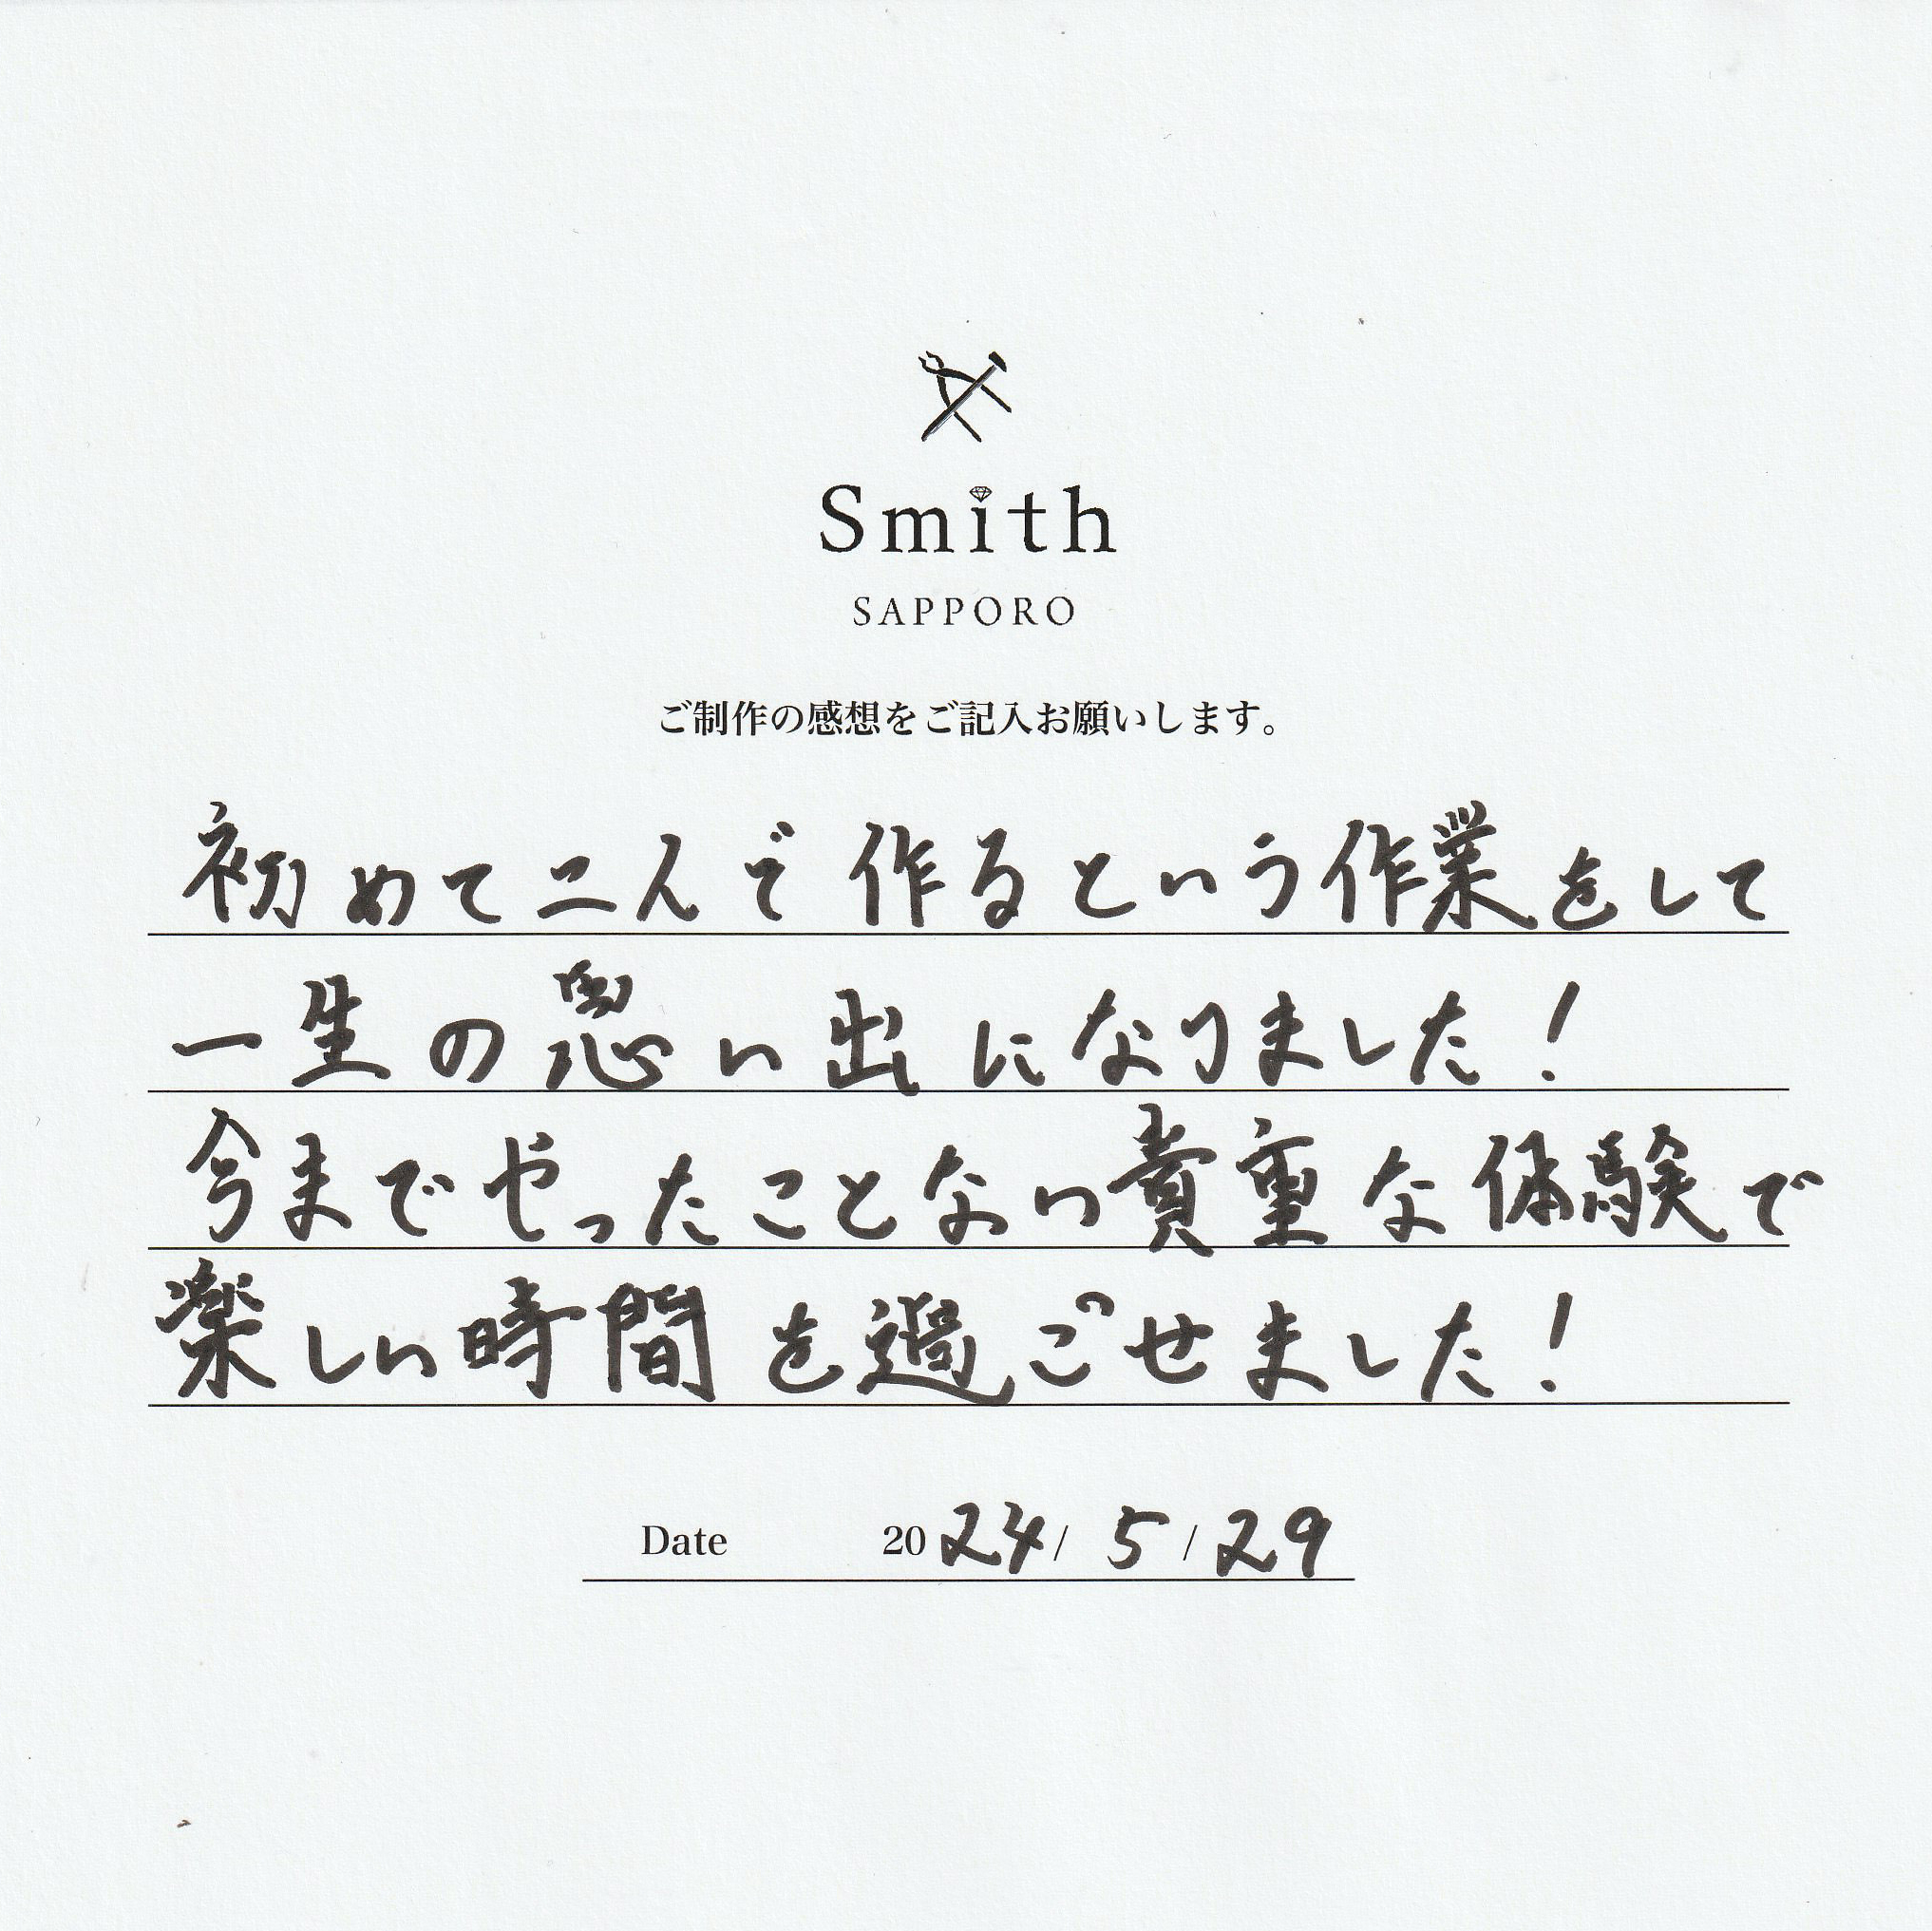 Smith
SAPPORO
ご制作の感想をご記入お願いします。
初めて二人で作るという作業をして
一生の思い出になりました!
今までやったことない貴重な体験で
楽しい時間を過ごせました!
Date 2024/5/29